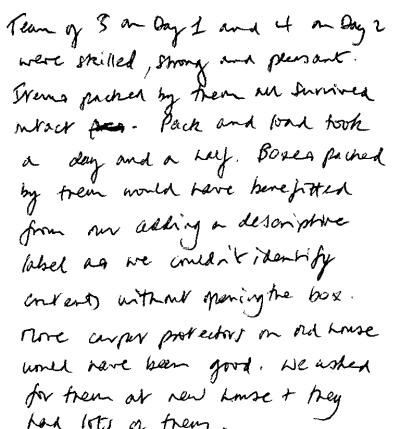 Team of 3 on Day 1 and 4 on Day 2
were skilled, strong and pleasant.
Items packed by them all survived
intact. Pack and load took
a day and a half. Boxes packed
by them would have benefitted
from our adding a descriptive
label as we couldn't identify
contents without opening the box.
More carpet protectors on old house
would have been good. We asked
for them at new house + they
had lots of them.